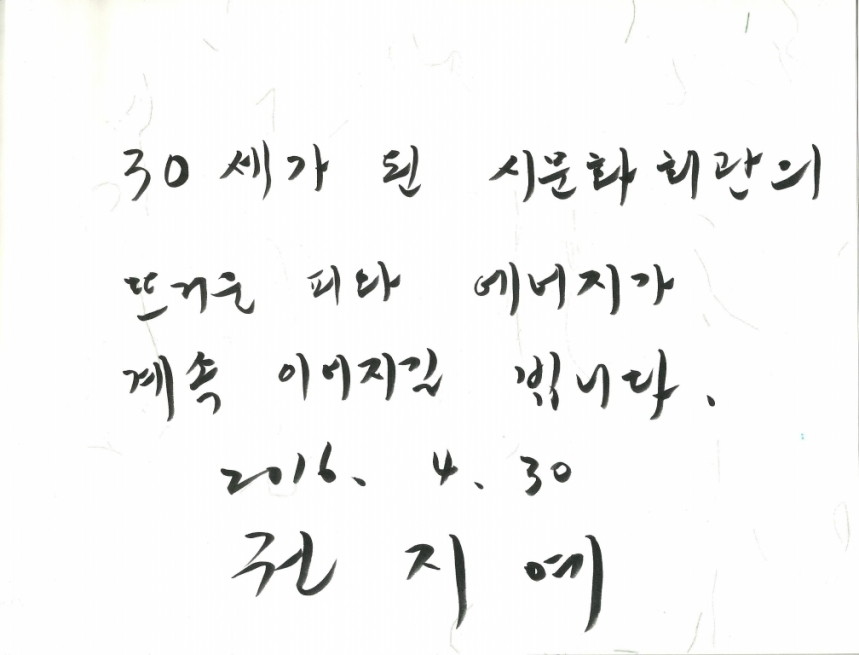 30세가 된 시문화회관의
뜨거운 피와 에너지가
계속 이어지길 빕니다.
2016. 4. 30
권지예